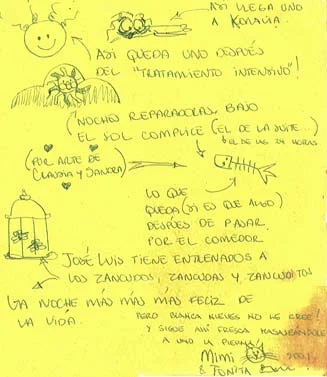 ASI LLEGA UNO
A KONAVLA
ASI QUEDA UNO DESPUÉS
DEL "TRATAMIENTO INTENSIVO"!
NOCHES REPARADORAS BAJO
EL SOL COMPLICE (EL DE LA SUITE...)
EL DE LAS 24 HORAS
(POR ARTE DE
CLAUDIA Y SANDRA)
LO QUE
QUEDA (SI ES QUE ALGO)
DESPUES DE PASAR
POR EL COMEDOR
JOSÉ LUIS TIENE ENTRENADOS A
LOS ZANCUDOS, ZANCUDAS Y ZANCUDITOS
LA NOCHE MÁS MÁS MÁS FELIZ DE
LA VIDA.
PERO BLANCA NIEVES NO ME CREE!
Y SIGUE AHI FRESCA
A UNO LA PIERNA!
MIMI 2001
& TOÑITA